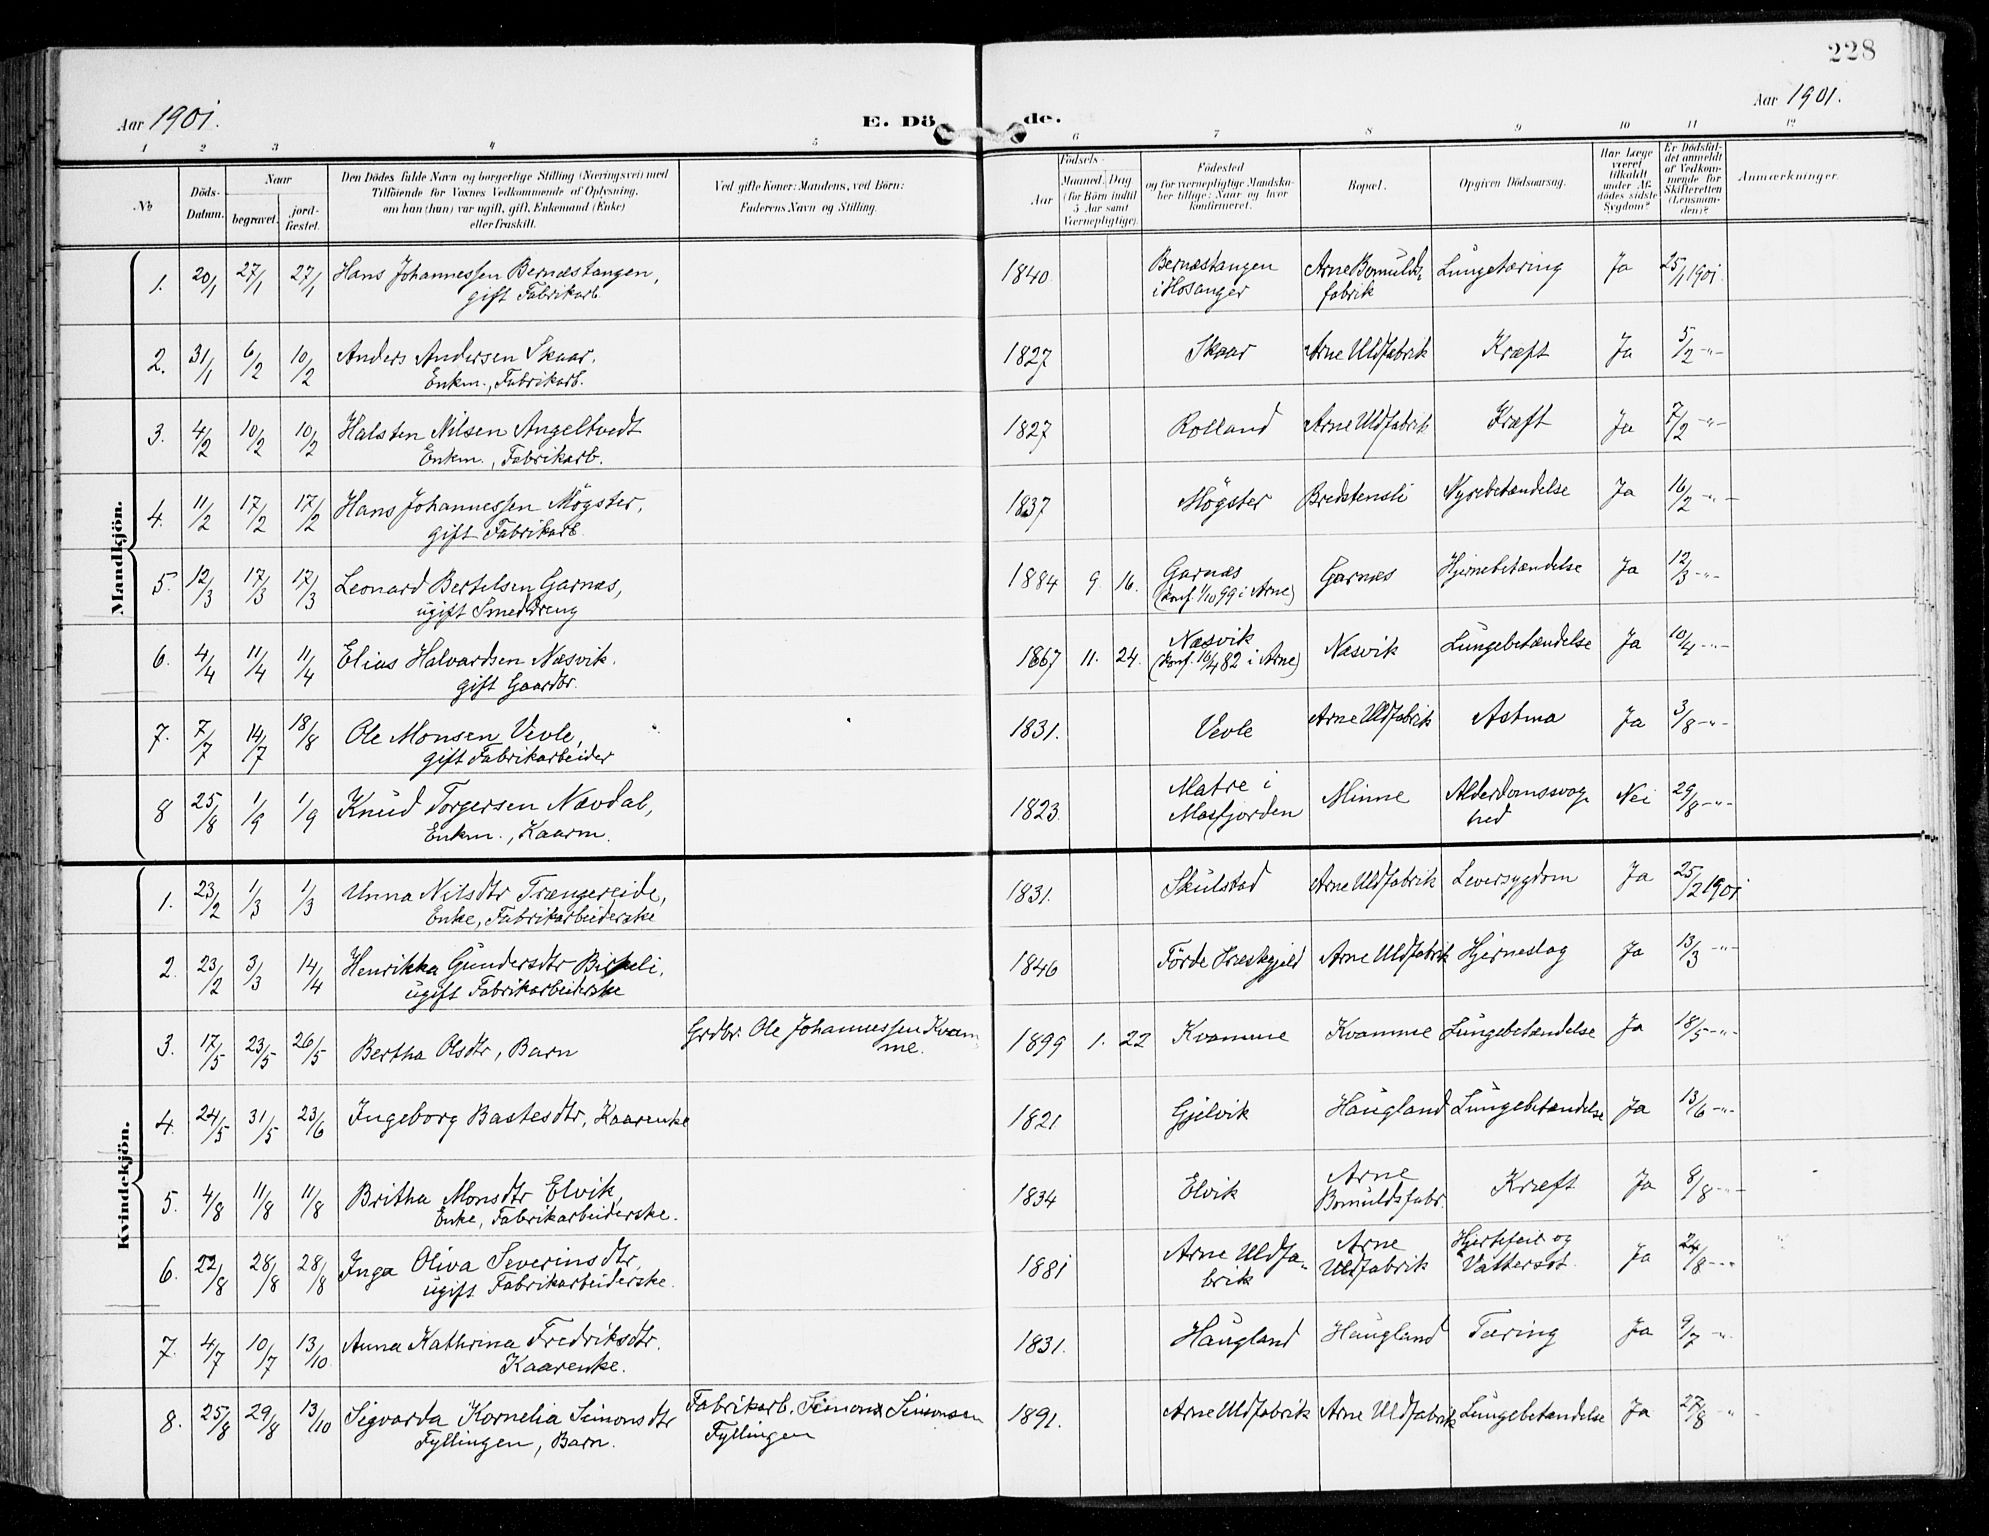 228
Aar 1901.
E. Dö de.
Aar 1901.
1 2 3 4 5 6 7 8 9 10 11 12
No
Döds-Datum.
Naar
begravet.
jord-fæstet.
Den Dödes fulde Navn og borgerlige Stilling (Næringsvei) med
Tilföiende for Voxnes Vedkommende af Oplysning,
om han (hun) var ugift, gift, Enkemand (Enke)
eller fraskilt.
Ved gifte Koner: Mandens, ved Börn:
Faderens Navn og Stilling.
Födsels-
Aar
Maaned. Dag
(for Börn indtil
5 Aar samt
Værnepligtige).
Födested
og for værnepligtige Mandska-
ber tillige: Naar og hvor
konfirmeret.
Bopæl.
Opgiven Dödsaarsag.
Har Læge
været
tilkaldt
under Af-
dödes sidste
Sygdom?
Er Dödsfal-
det anmeldt
af Vedkom-
mende for
Skifteretten
(Lensman-
den)?
Anmærkninger.
Mandkjön.
1. 20/1 27/1 27/1 Hans Johannessen Bernæstangen, 1840. Bernæstangen Arne Bomulds- Lungetæring Ja 25/1 1901.
gift Fabrikarb. i Hosanger fabrik
2. 31/1 6/2 10/2 Anders Andersen Skaar. 1827 Skaar Arne Uldfabrik Kræft Ja 5/2 -"-
Enkm., Fabrikarb.
3. 4/2 10/2 10/2 Halsten Nilsen Angeltvedt 1827 Rolland Arne Uldfabrik Kræft Ja 7/2 -"-
Enkm., Fabrikarb.
4. 11/2 17/2 17/2 Hans Johannessen Mögster, 1837 Mögster Bredstensli Nyrebetændelse Ja 16/2 -"-
gift Fabrikarb.
5. 12/3 17/3 17/3 Leonard Bertelsen Garnæs, 1884 9. 16. Garnæs Garnæs Hjernebetændelse Ja 12/3 -"-
ugift Smeddreng (konf. 1/10 99 i Arne)
6. 4/4 11/4 11/4 Elias Halvardsen Næsvik. 1867 11. 24. Næsvik Næsvik Lungebetændelse Ja 10/4 -"-
gift Gaardbr. (konf. 16/4 82 i Arne)
7. 7/7 14/7 18/8 Ole Monsen Vevle, 1831. Vevle Arne Uldfabrik Astma Ja 3/8 -"-
gift Fabrikarbeider
8 25/8 1/9 1/9 Knud Torgersen Nævdal, 1823. Matre i Minne Alderdomssvag- Nei 29/8 -"-
Enkm., Kaarm. Masfjorden hed
Kvindekjön.
1. 23/2 1/3 1/3 Unna Nilsdtr Trængereide, 1831. Skulstad Arne Uldfabrik Leversygdom Ja 25/2 1901
Enke, Fabrikarbeiderske
2. 23/2 3/3 14/4 Henrikka Gundersdtr Birkeli, 1846 Förde Præstegjeld Arne Uldfabrik Hjerneslag Ja 13/3 -"-
ugift Fabrikarbeiderske
3. 17/5 23/5 26/5 Bertha Olsdtr, Barn Grdbr. Ole Johannessen Kvam- 1899 1. 22 Kvamme Kvamme Lungebetændelse Ja 18/5 -"-
me.
4. 24/5 31/5 23/6 Ingeborg Bastesdtr, Kaarenke 1821 Gjelvik Haugland Lungebetændelse Ja 13/6 -"-
5. 4/8 11/8 11/8 Britha Monsdtr Elvik, 1834 Elvik Arne Kræft Ja 8/8 -"-
Enke, Fabrikarbeiderske. Bomuldsfabr.
6. 22/8 28/8 28/8 Inga Oliva Severinsdtr, 1881 Arne Uldfa- Arne Hjertefeil og Ja 24/8 -"-
ugift Fabrikarbeiderske. brik Uldfabrik Vattersot.
7. 4/7 10/7 13/10 Anna Kathrina Fredriksdtr. 1831. Haugland Haugland Tæring Ja 9/7 -"-
Kaarenke.
8. 25/8 29/8 13/10 Sigvarda Kornelia Simonsdtr Fabrikarb. Simon Simonsen 1891. Arne Uldfabrik Arne Uldfabrik Lungebetændelse Ja 27/8 -"-
Fyllingen, Barn. Fyllingen